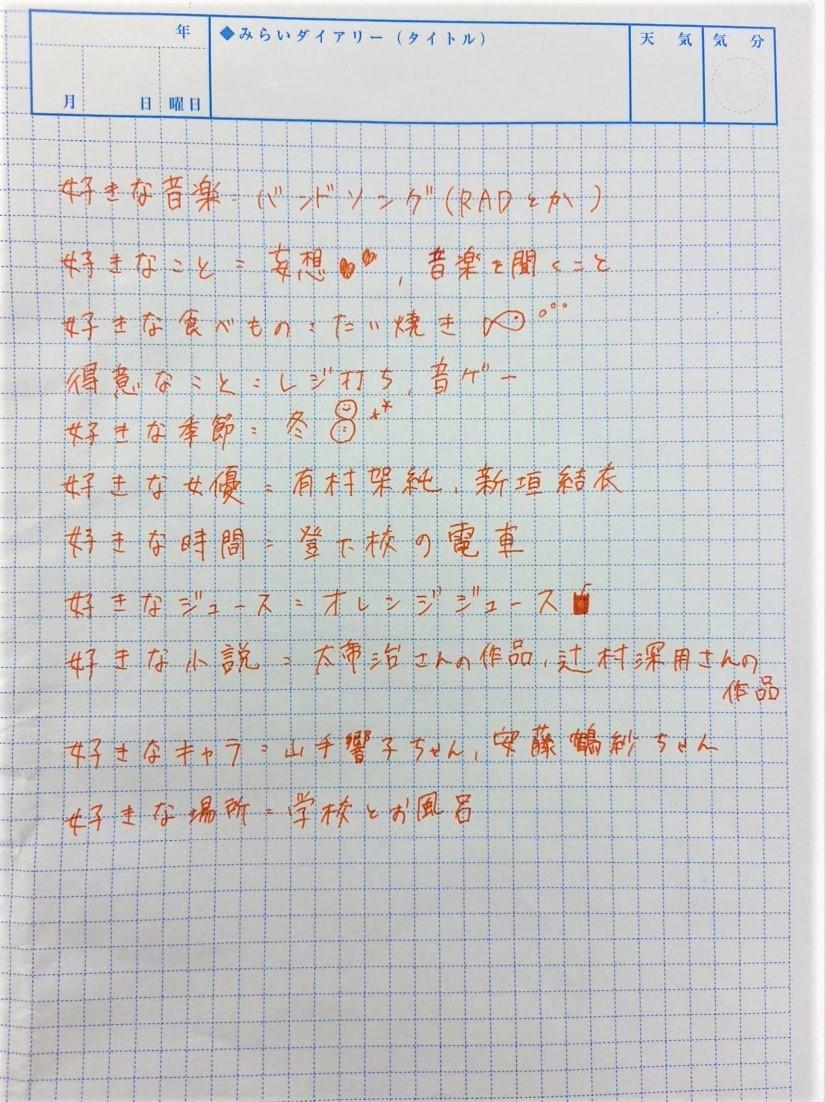 年
◆みらいダイアリー（タイトル）
天 気
気 分
月 日 曜日
好きな音楽=バンドソング(RADとか)
好きなこと=妄想, 音楽を聞くこと
好きな食べもの=たい焼き
得意なこと=レジ打ち, 音ゲー
好きな季節=冬
好きな女優=有村架純, 新垣結衣
好きな時間=登下校の電車
好きなジュース=オレンジジュース
好きな小説=太宰治さんの作品, 辻村深月さんの
作品
好きなキャラ=山手響子ちゃん, 安藤鶴紗ちゃん
好きな場所=学校とお風呂